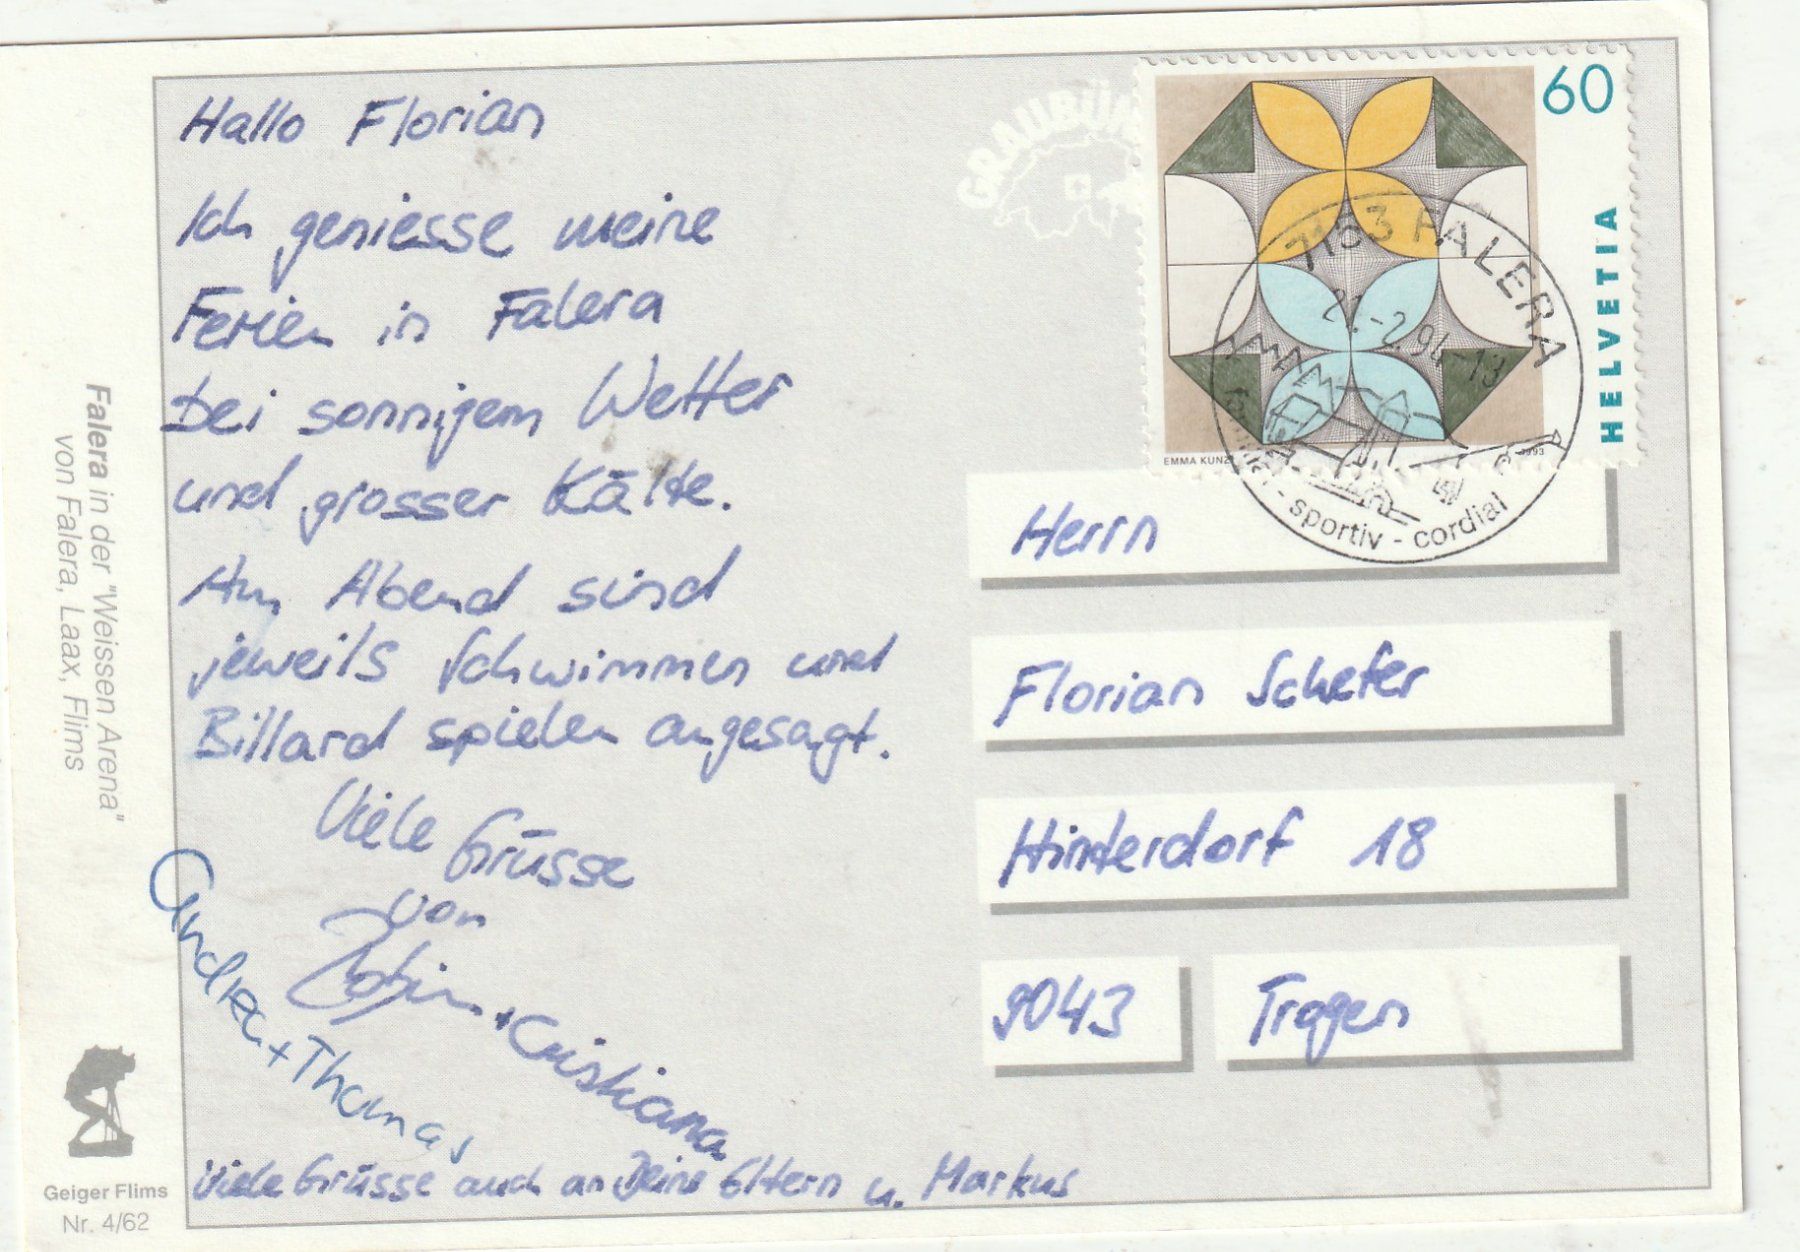 Hallo Florian
Ich geniesse meine
Ferien in Falera
bei sonnigem Wetter
und grosser Kälte.
Am Abend sind
jeweils Schwimmen und
Billard spielen angesagt.
Viele Grüsse
von
+ Cristiana
Andrea + Thomas
Viele Grüsse auch an Deine Eltern u. Markus
GRAUBÜN
60
HELVETIA
EMMA KUNZ
1993
7153 FALERA
-2.94-13
- sportiv - cordial
Herrn
Florian Schefer
Hinterdorf 18
9043 Trogen
Falera in der "Weissen Arena"
von Falera, Laax, Flims
Geiger Flims
Nr. 4/62